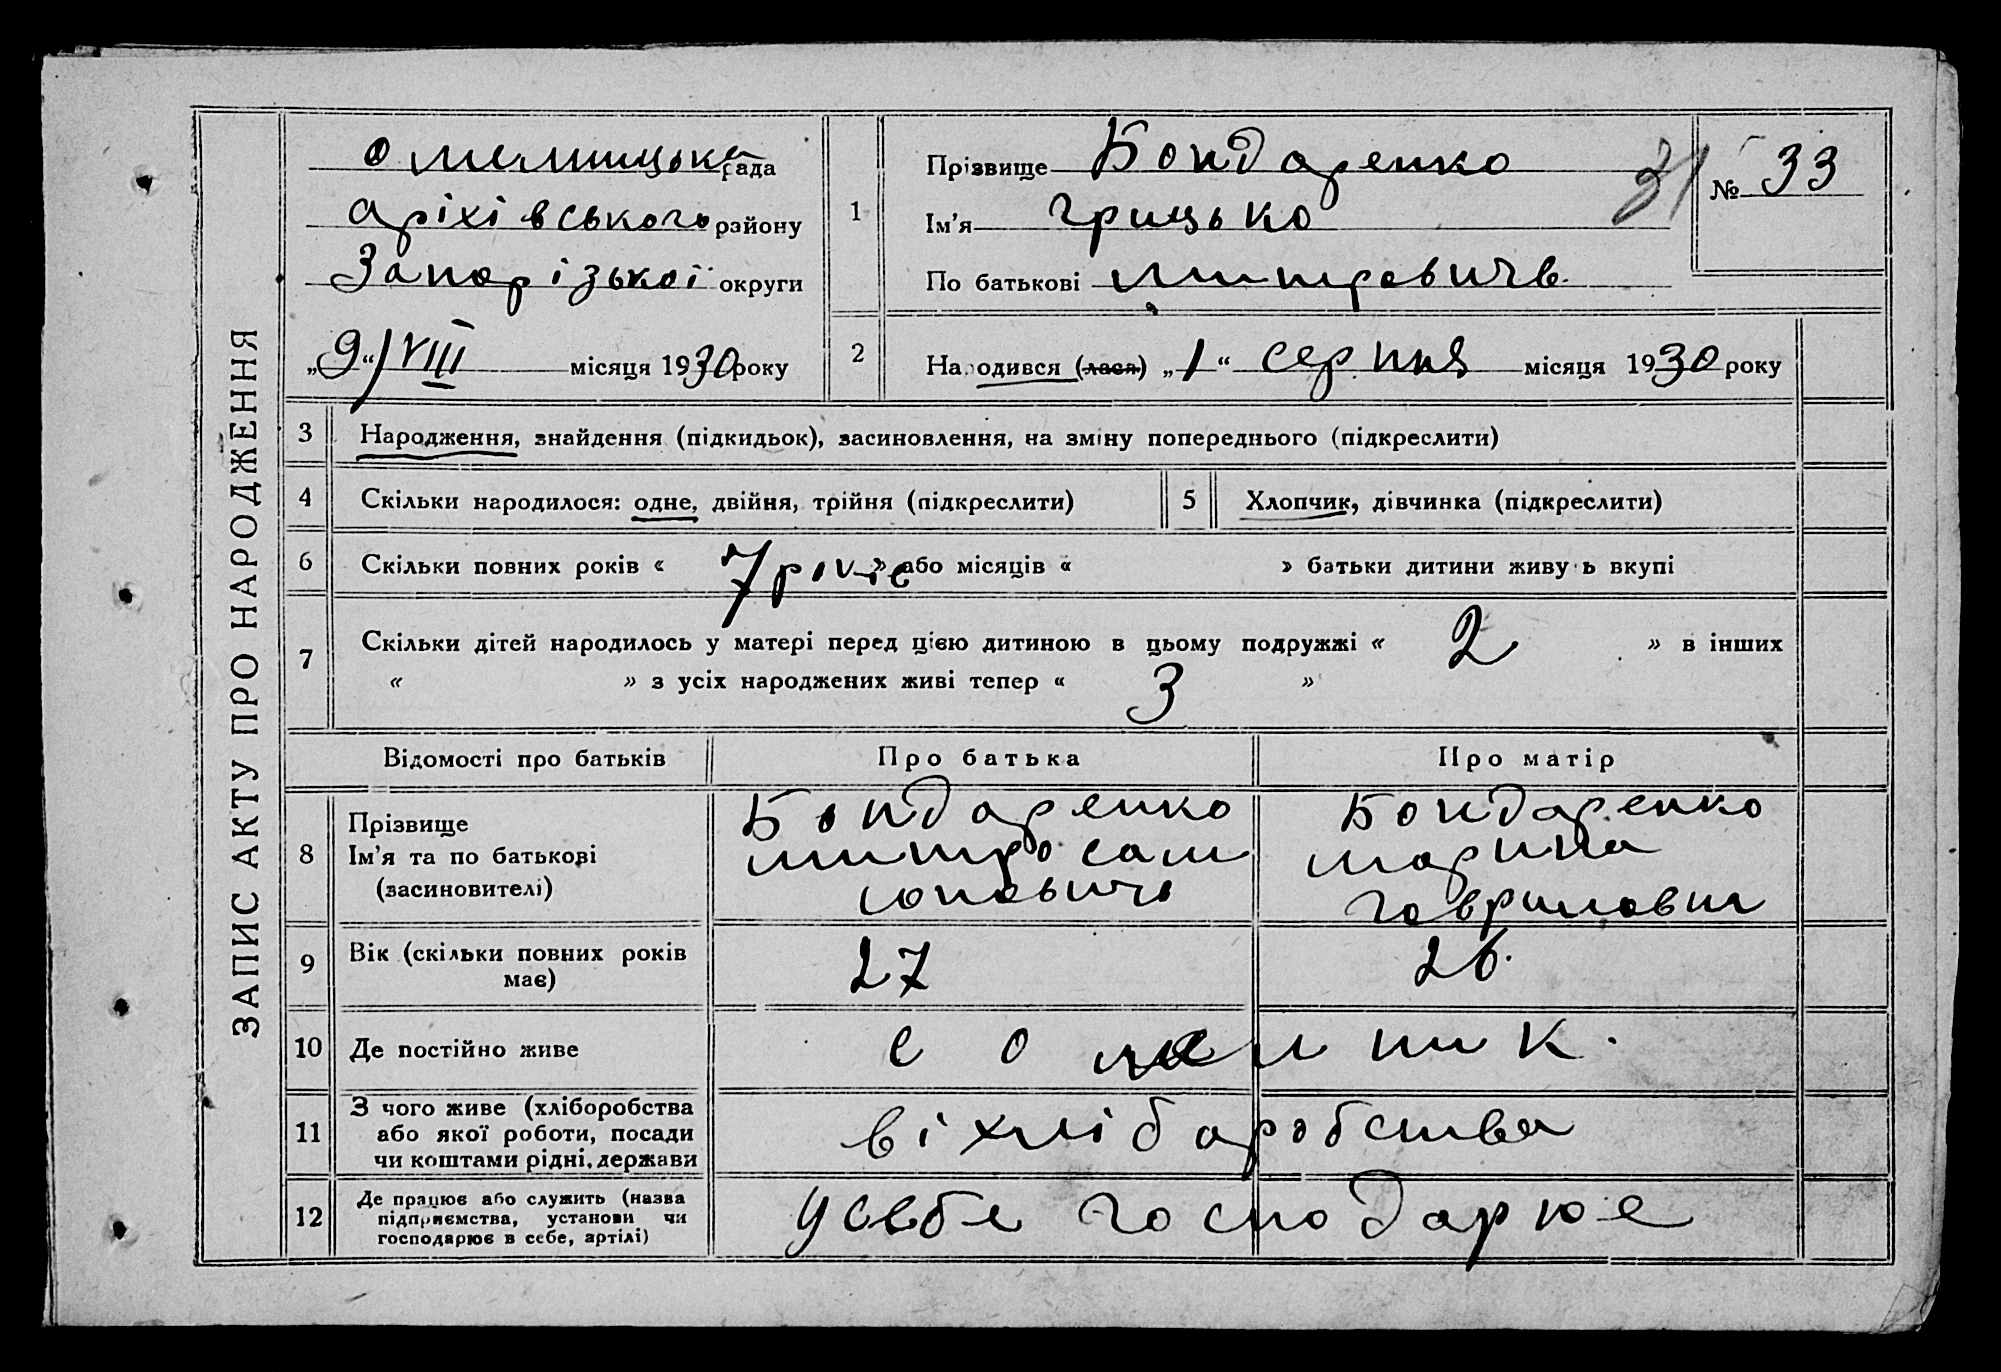 ЗАПИС АКТУ ПРО НАРОДЖЕННЯ
Омельницька рада
Оріхівського району
Запорізької округи
„9“/VIII місяця 1930 року
1
Прізвище Бондаренко
Ім'я Грицько
По батькові Митровичь
31
№ 33
2
Народився (лася) „1“ серпня місяця 1930 року
3 Народження, знайдення (підкидьок), засиновлення, на зміну попереднього (підкреслити)
4 Скільки народилося: одне, двійня, трійня (підкреслити)
5 Хлопчик, дівчинка (підкреслити)
6 Скільки повних років « 7 років » або місяців « » батьки дитини живуть вкупі
7 Скільки дітей народилось у матері перед цією дитиною в цьому подружжі « 2 » в інших
« » з усіх народжених живі тепер « 3 »
Відомості про батьків Про батька Про матір
8 Прізвище
Ім'я та по батькові
(засиновителі)
Бондаренко
Митро Сам
Бондаренко
Марина
Гавриловна
9 Вік (скільки повних років
має)
27
26.
10 Де постійно живе
с Омельник.
11 З чого живе (хліборобства
або якої роботи, посади
чи коштами рідні, держави
віхлібаробства
12 Де працює або служить (назва
підприємства, установи чи
господарює в себе, артілі)
усебе господарює